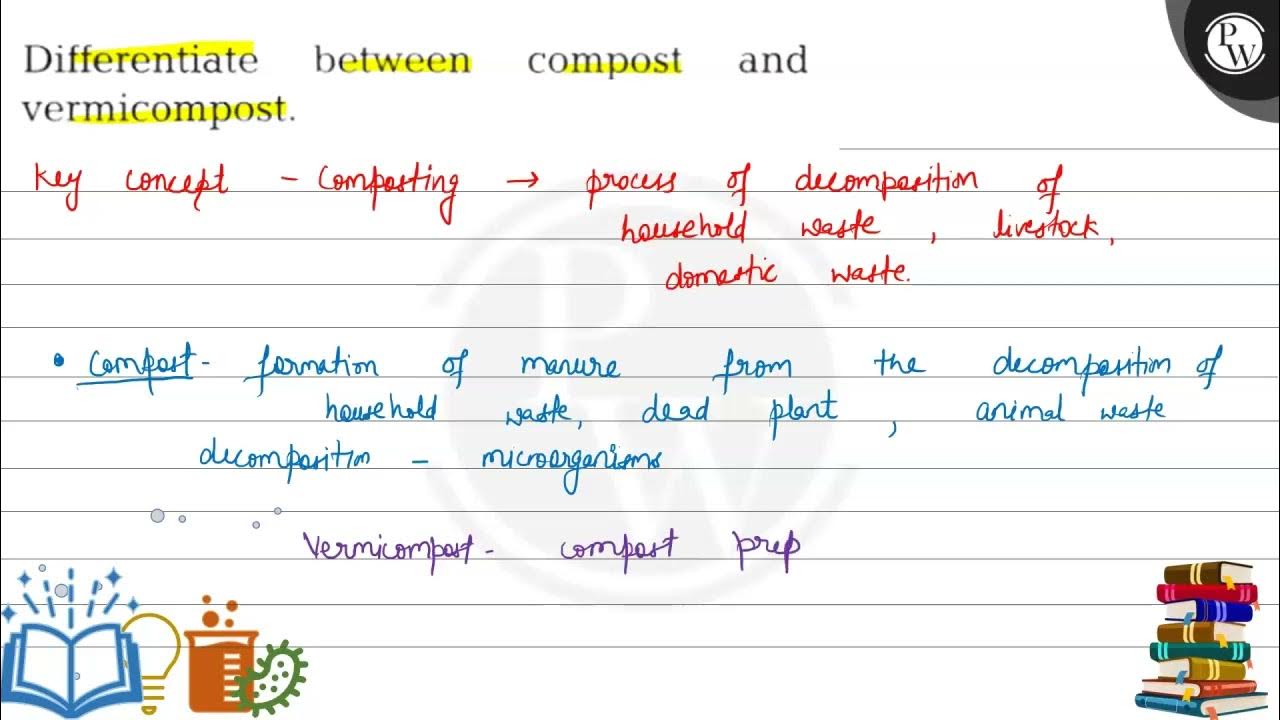 Differentiate between compost and
vermicompost.
Key concept - Composting → process of decomposition of
household waste, livestock,
domestic waste.
• Compost - formation of manure from the decomposition of
household waste, dead plant, animal waste
decomposition - microorganisms
Vermicompost - compost prep
P
W
PW